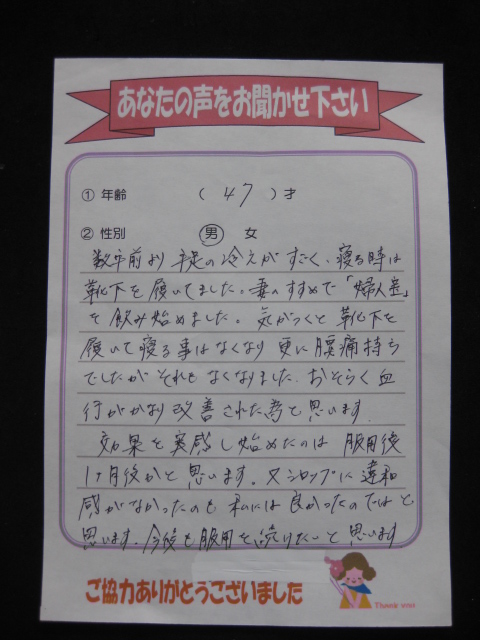 あなたの声をお聞かせ下さい
① 年齢 （ 47 ）才
② 性別 男 女
数年前より 手足の冷えがすごく、寝る時は
靴下を履いてました。妻のすすめで「婦人宝」
を飲み始めました。気がつくと靴下を
履いて寝る事はなくなり 更に腰痛持ち
でしたがそれもなくなりました。おそらく血
行がかなり改善された為と思います。
効果を実感し始めたのは 服用後
1ヶ月後かと思います。又シロップに違和
感がなかったのも 私には良かったのではと
思います。今後も服用を続けたいと思います
ご協力ありがとうございました
Thank you